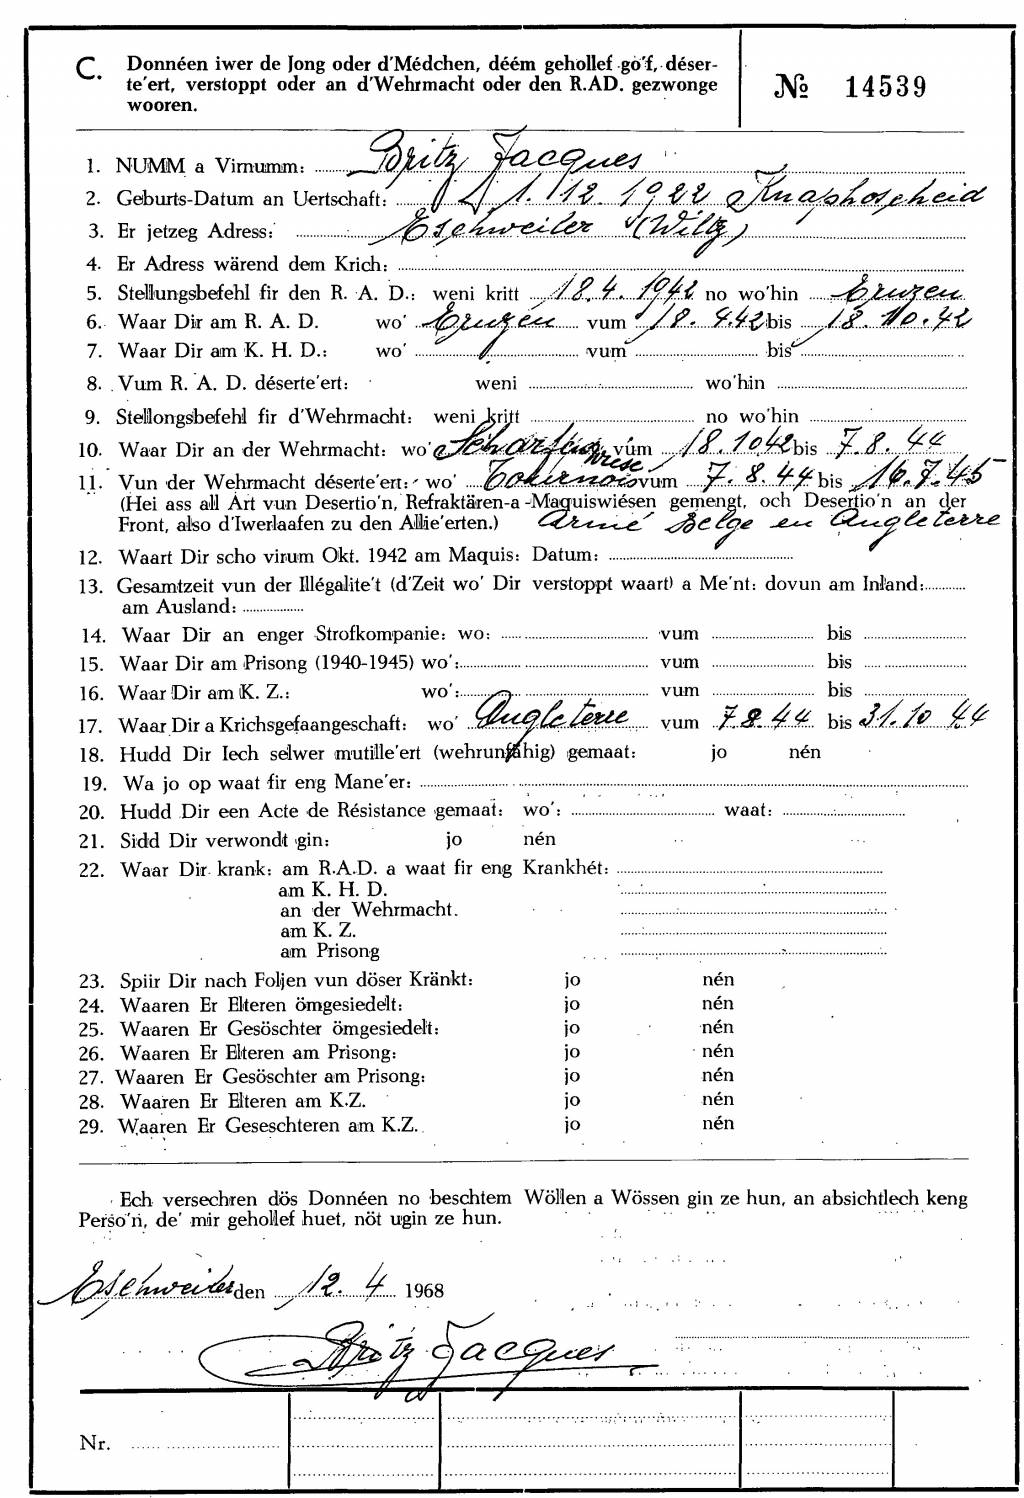 C. Donnéen iwer de Jong oder d'Médchen, déém gehollef go'f, déser-
te'ert, verstoppt oder an d'Wehrmacht oder den R.AD. gezwonge
wooren.
№ 14539
1. NUMM a Virnumm: Britz Jacques
2. Geburts-Datum an Uertschaft: 1. 12 1922 Knaphoscheid
3. Er jetzeg Adress: Eschweiler (Wiltz)
4. Er Adress wärend dem Krich:
5. Stellungsbefehl fir den R. A. D.: weni kritt 18.4.1942 no wo'hin Eruzen
6. Waar Dir am R. A. D. wo' Eruzen vum 18. 4.42 bis 18. 10. 42
7. Waar Dir am K. H. D.: wo' vum bis
8. Vum R. A. D. déserte'ert: weni wo'hin
9. Stellongsbefehl fir d'Wehrmacht: weni kritt no wo'hin
10. Waar Dir an der Wehrmacht: wo' vum 18.10 42 bis 7.8. 44
11. Vun der Wehrmacht déserte'ert: wo' vum 7. 8. 44 bis 16.7.45
(Hei ass all Art vun Desertio'n, Refraktären-a-Maquiswiésen gemengt, och Desertio'n an der
Front, also d'Iwerlaafen zu den Allie'erten.) Armé Belge en Angleterre
12. Waart Dir scho virum Okt. 1942 am Maquis: Datum:
13. Gesamtzeit vun der Illégalite't (d'Zeit wo' Dir verstoppt waart) a Me'nt: dovun am Inland:
am Ausland:
14. Waar Dir an enger Strofkompanie: wo: vum bis
15. Waar Dir am Prisong (1940-1945) wo': vum bis
16. Waar Dir am K. Z.: wo': vum bis
17. Waar Dir a Krichsgefaangeschaft: wo' Angleterre vum 7 8. 44 bis 31.10 44
18. Hudd Dir Iech selwer mutille'ert (wehrunfähig) gemaat: jo nén
19. Wa jo op waat fir eng Mane'er:
20. Hudd Dir een Acte de Résistance gemaat: wo': waat:
21. Sidd Dir verwondt gin: jo nén
22. Waar Dir krank: am R.A.D. a waat fir eng Krankhét:
am K. H. D.
an der Wehrmacht.
am K. Z.
am Prisong
23. Spiir Dir nach Foljen vun döser Kränkt: jo nén
24. Waaren Er Elteren ömgesiedelt: jo nén
25. Waaren Er Gesöschter ömgesiedelt: jo nén
26. Waaren Er Elteren am Prisong: jo nén
27. Waaren Er Gesöschter am Prisong: jo nén
28. Waaren Er Elteren am K.Z. jo nén
29. Waaren Er Geseschteren am K.Z. jo nén
Ech versechren dös Donnéen no beschtem Wöllen a Wössen gin ze hun, an absichtlech keng
Perso'n, de' mir gehollef huet, nöt ugin ze hun.
Eschweiler den 12. 4 1968
Britz Jacques
Nr.